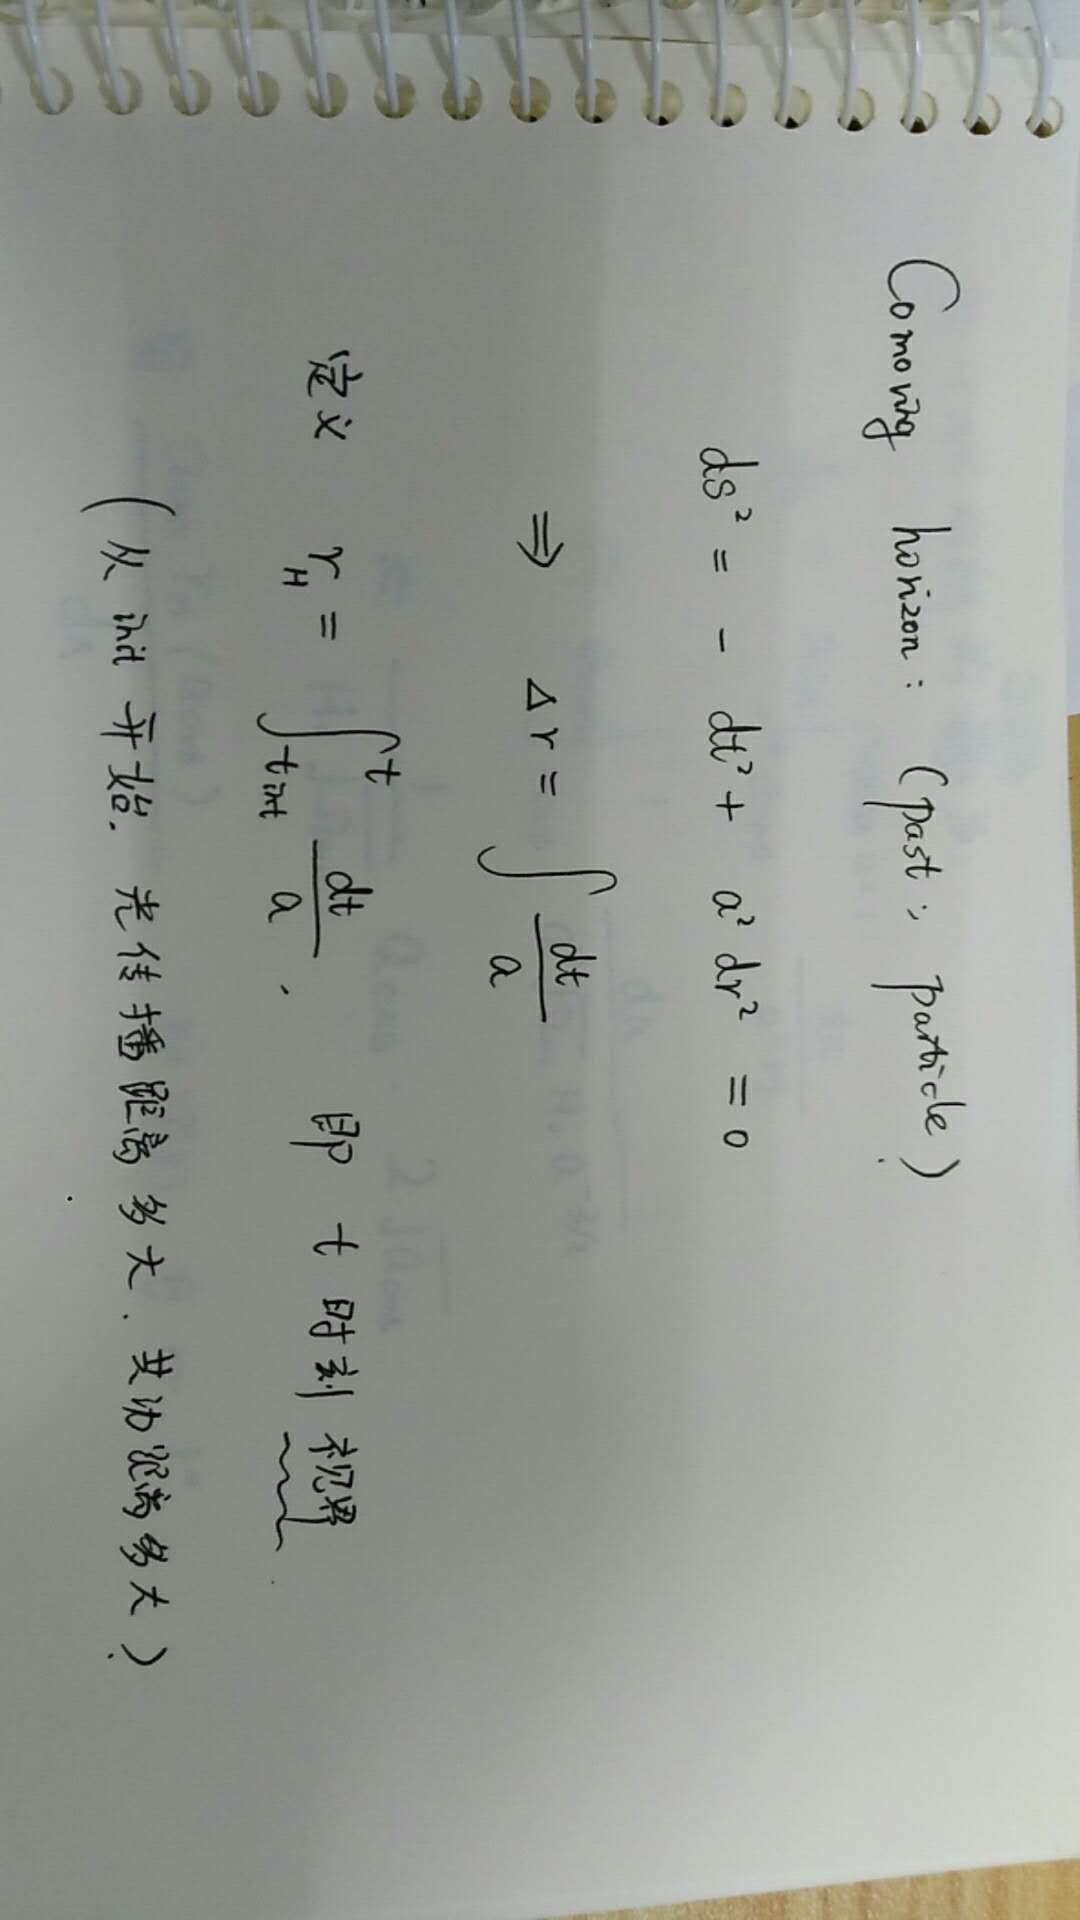 Comoving horizon: (past; particle)
ds² = - dt² + a² dr² = 0
⇒ Δr = ∫ dt/a
定义 r_H = ∫_{t init}^{t} dt/a , 即 t 时刻 视界
(从 init 开始. 光传播距离多大. 共动距离多大)